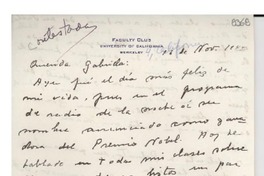 contestada
FACULTY CLUB
UNIVERSITY OF CALIFORNIA
BERKELEY
de Nov.
Querida Gabriela:
Ayer fué el día más feliz de
mi vida, pues en el programa
de radio de la noche oí su
nombre anunciado como gana-
dora del Premio Nobel. Hoy he
hablado en todas mis clases sobre